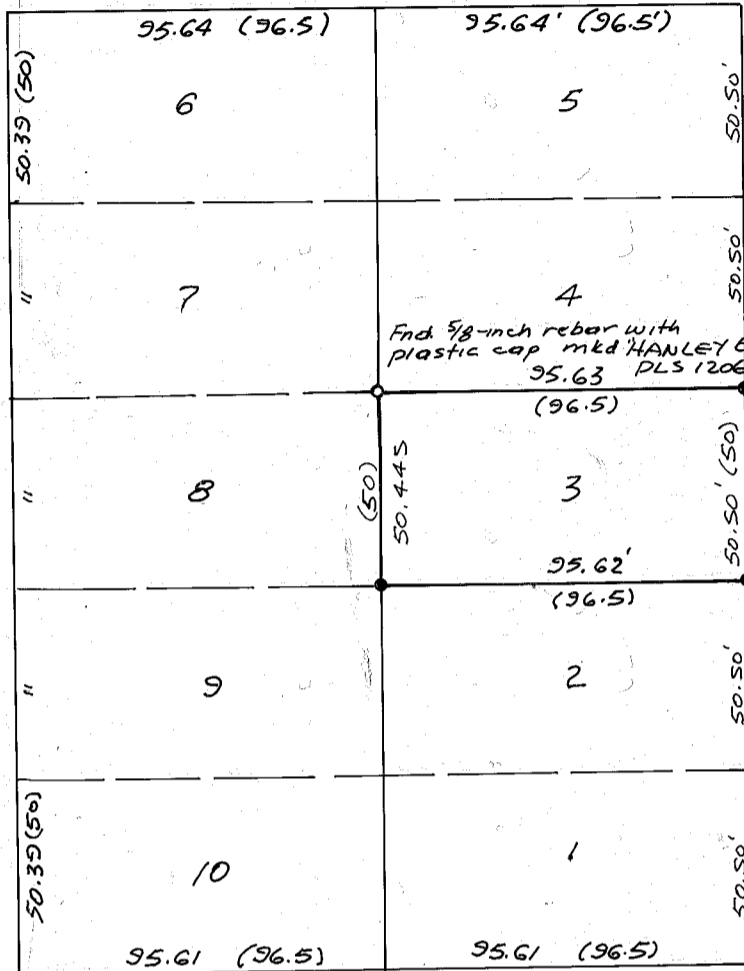 95.64 (96.5)
95.64' (96.5')
50.39 (50)
6
5
50.50'
"
7
4
50.50'
Fnd. 5/8-inch rebar with
plastic cap mkd "HANLEY E
PLS 1206
95.63
(96.5)
"
8
(50)
50.445
3
50.50' (50)
95.62'
(96.5)
"
9
2
50.50'
50.39 (50)
10
1
50.50'
95.61 (96.5)
95.61 (96.5)